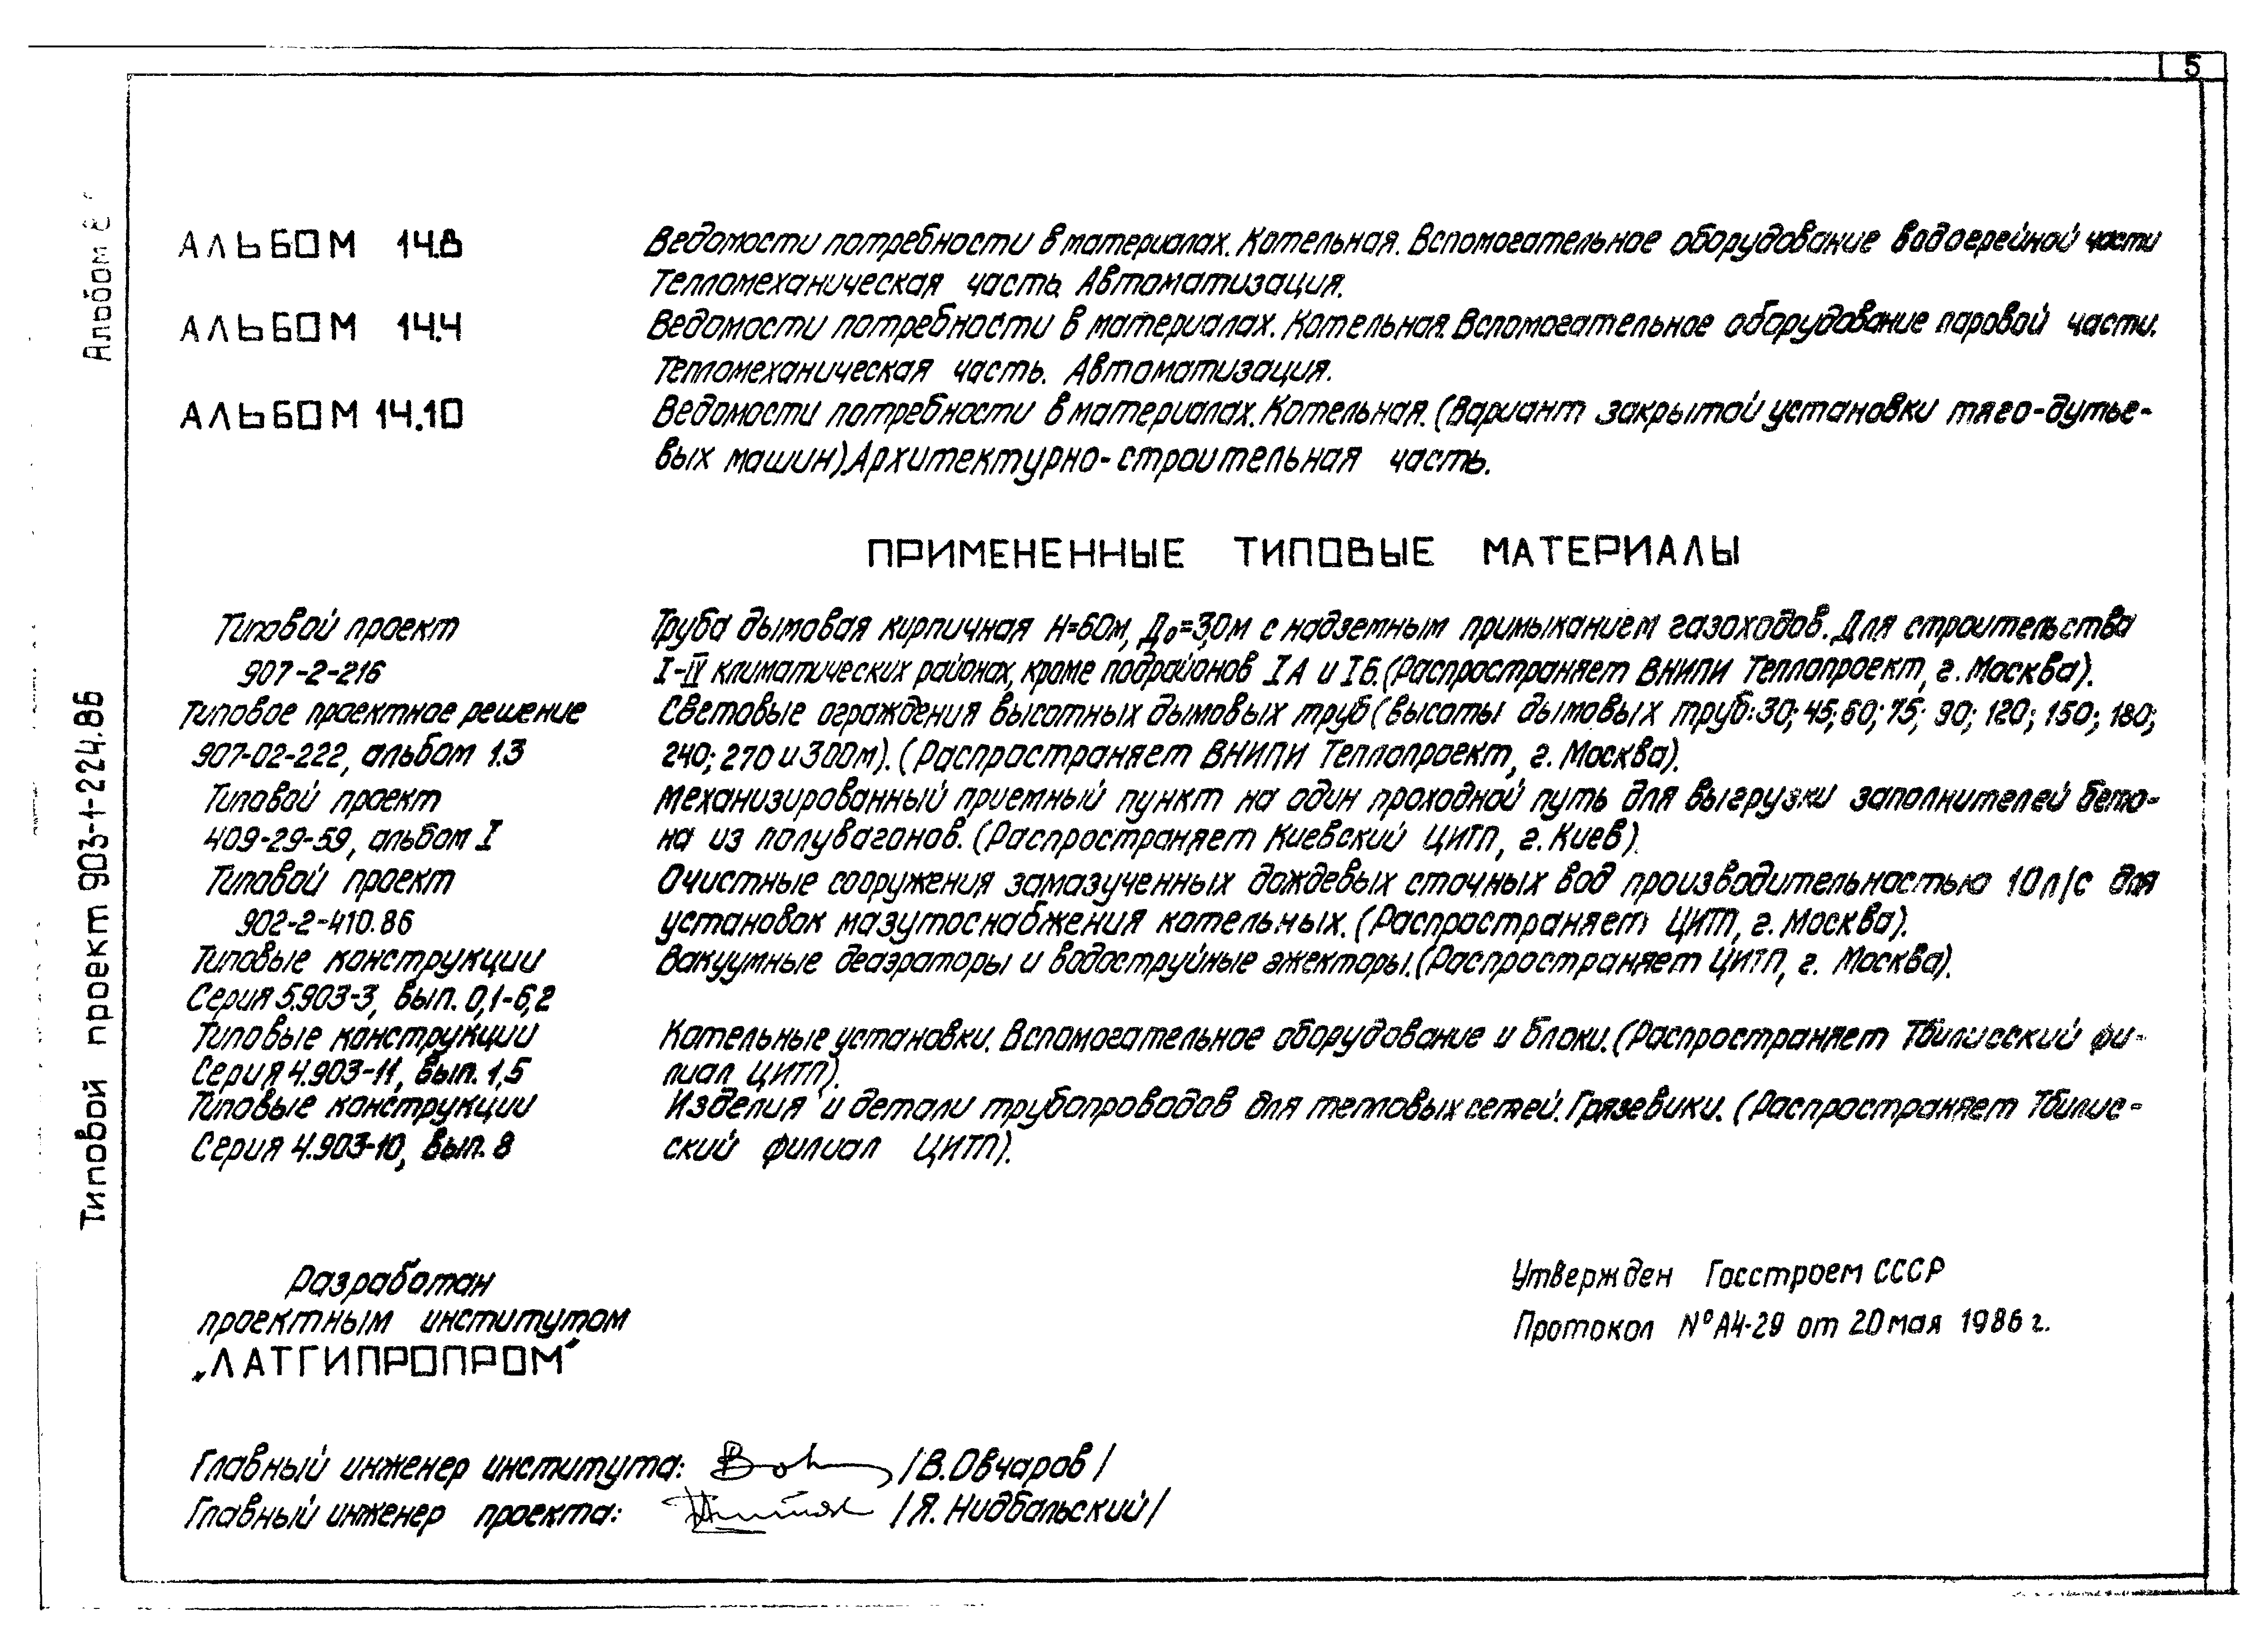 5
Альбом 8
Типовой проект 903-1-224.86
АЛЬБОМ 14.8 Ведомости потребности в материалах. Котельная. Вспомогательное оборудование водогрейной части
Тепломеханическая часть. Автоматизация.
АЛЬБОМ 14.4 Ведомости потребности в материалах. Котельная. Вспомогательное оборудование паровой части.
Тепломеханическая часть. Автоматизация.
АЛЬБОМ 14.10 Ведомости потребности в материалах. Котельная. (Вариант закрытой установки тяго-дутье-
вых машин). Архитектурно-строительная часть.
ПРИМЕНЕННЫЕ ТИПОВЫЕ МАТЕРИАЛЫ
Типовой проект Труба дымовая кирпичная Н=60м, Д₀=3,0м с надземным примыканием газоходов. Для строительства
907-2-216 I-IV климатических районах, кроме подрайонов IА и IБ. (Распространяет ВНИПИ Теплопроект, г. Москва).
Типовое проектное решение Световые ограждения высотных дымовых труб (высоты дымовых труб: 30; 45; 60; 75; 90; 120; 150; 180;
907-02-222, альбом 1.3 240; 270 и 300м). (Распространяет ВНИПИ Теплопроект, г. Москва).
Типовой проект Механизированный приемный пункт на один проходной путь для выгрузки заполнителей бето-
409-29-59, альбом I на из полувагонов. (Распространяет Киевский ЦИТП, г. Киев).
Типовой проект Очистные сооружения замазученных дождевых сточных вод производительностью 10 л/с для
902-2-410.86 установок мазутоснабжения котельных. (Распространяет ЦИТП, г. Москва).
Типовые конструкции Вакуумные деаэраторы и водоструйные эжекторы. (Распространяет ЦИТП, г. Москва).
Серия 5.903-3, вып. 0,1-6,2
Типовые конструкции Котельные установки. Вспомогательное оборудование и блоки. (Распространяет Тбилисский фи-
Серия 4.903-11, вып. 1,5 лиал ЦИТП).
Типовые конструкции Изделия и детали трубопроводов для тепловых сетей. Грязевики. (Распространяет Тбилис-
Серия 4.903-10, вып. 8 ский филиал ЦИТП).
Разработан
проектным институтом
„ЛАТГИПРОПРОМ"
Утвержден Госстроем СССР
Протокол № А4-29 от 20 мая 1986 г.
Главный инженер института: /В. Овчаров/
Главный инженер проекта: /Я. Нидбальский/